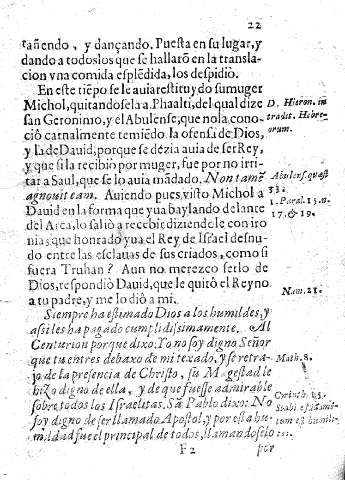 22
tañendo, y dançando. Puesta en su lugar, y
dando a todos los que se hallarõ en la transla-
cion vna comida esplẽdida, los despidio.
En este tiẽpo se le auia restituydo su muger
Michol, quitandosela a Phaalti, del qual dize
san Geronimo, y el Abulense, que no la cono-
ciò carnalmente temiẽdo la ofensa de Dios,
y la de Dauid, porque se dezia auia de ser Rey,
y que si la recibio por muger, fue por no irri-
tar a Saul, que se lo auia mãdado. Non tamẽ
agnouit eam. Auiendo pues visto Michol a
Dauid en la forma que yua baylando delante
del Arca, lo saliò a recebir diziendole con iro
nia: que honrado yua el Rey de Israel desnu-
do entre las esclauas de sus criados, como si
fuera Truhan? Aun no merezco serlo de
Dios, respondiò Dauid, que le quitò el Reyno
a tu padre, y me lo diò a mi.
Siempre ha estimado Dios a los humildes, y
assi les ha pagado cumplidissimamente. Al
Centurion porque dixo: Yo no soy digno Señor
que tu entres debaxo de mi texado, y se retra-
jo de la presencia de Christo, su Magestad le
hizo digno de ella, y de que fuesse admirable
sobre todos los Israelitas. Sã Pablo dixo: No
soy digno de ser llamado Apostol, y por esta hu-
mildad fue el principal de todos, llamandoselo
F2 por
D. Hieron. in
tradit. Hebre-
orum.
Abulens. quæst
1. Paral. 15. n.
17. & 19.
Num. 21.
Math. 8.
Corinth. 15.